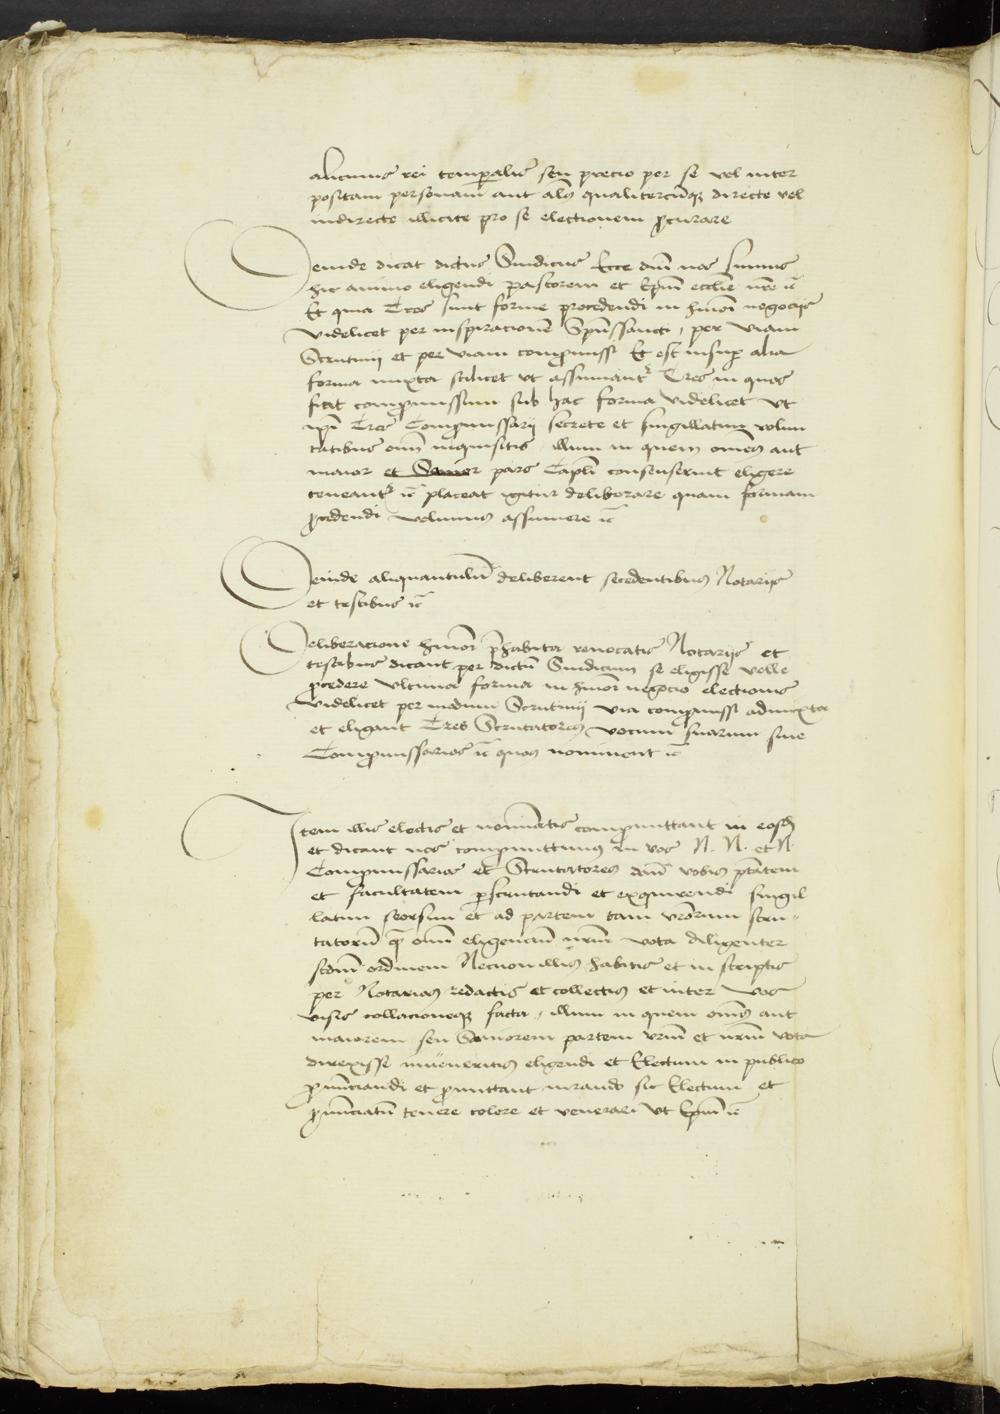 alicuius rei temporalis seu precio per se vel inter
positam personam aut alias qualitercumq directe vel
indirecte illicite pro se electionem pcurare
Deinde dicat dictus Sindicus Ecce dni nos sumus
hic animo eligendi pastorem et Epm ecclie nre ec
Et quia Tres sunt forme procedendi in hmoi negocijs
videlicet per inspiracionem Spussancti, per viam
Scrutinij et per viam compromissi Et est insup alia
forma mixta scilicet vt assumantr Tres in quos
fiat compromissum sub hac forma videlicet vt
ipi Tres Compromissarij secrete et singillatim volun
tatibus oim inquisitis illum in quem omes aut
maior et Sanior pars Capli consenserint eligere
teneantr ec placeat igitur deliberare quam formam
pcedendi velimus assumere ec
Deinde aliquantulum deliberent secedentibus Notarijs
et testibus ec
Deliberacione hmoi phabita reuocatis Notarijs et
testibus dicant per dictum Sindicum se eligisse velle
pcedere vltima forma in hmoi negocio electionis
videlicet per modum Scrutinij via compromissi admixta
et eligant Tres Scrutatores vocum suarum siue
Compromissarios ec quos nominent ec
Item illis electis et nominatis compromittant in eosd
et dicant nos compromittimus in vos N. N. et N.
Compromissarios et Scrutatores dam vobis ptatem
et facultatem pscrutandi et exquirendi singil
latim seorsum et ad partem tam vrorum scru-
tatorum q oim eligencium nrm vota diligenter
scdm ordinem Necnon illis habitis et in scriptis
per Notarios redactis et collectis et inter vos
visis collacioneq facta, illum in quem omes aut
maiorem seu Saniorem partem vrm et nrm vota
direxisse inueneritis eligendi et Electum in publico
pnunciandi et promittant iurando sic Electum et
pnunciatum tenere colere et venerari vt Epm ec